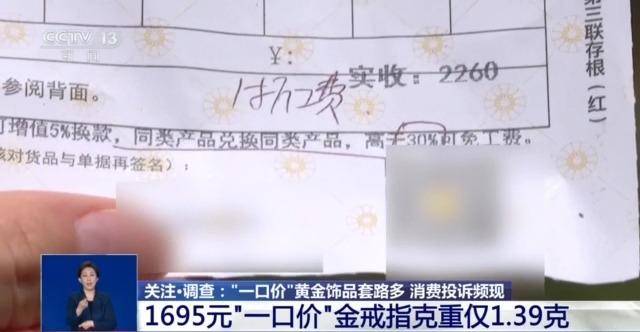 CCTV 13
新闻
¥:
实收: 2260
参阅背面。
增值5%换款，同类产品兑换同类产品，高于30%可免工费。
对货品与单据再签名）：
第三联存根（红）
关注·调查："一口价"黄金饰品套路多 消费投诉频现
1695元"一口价"金戒指克重仅1.39克